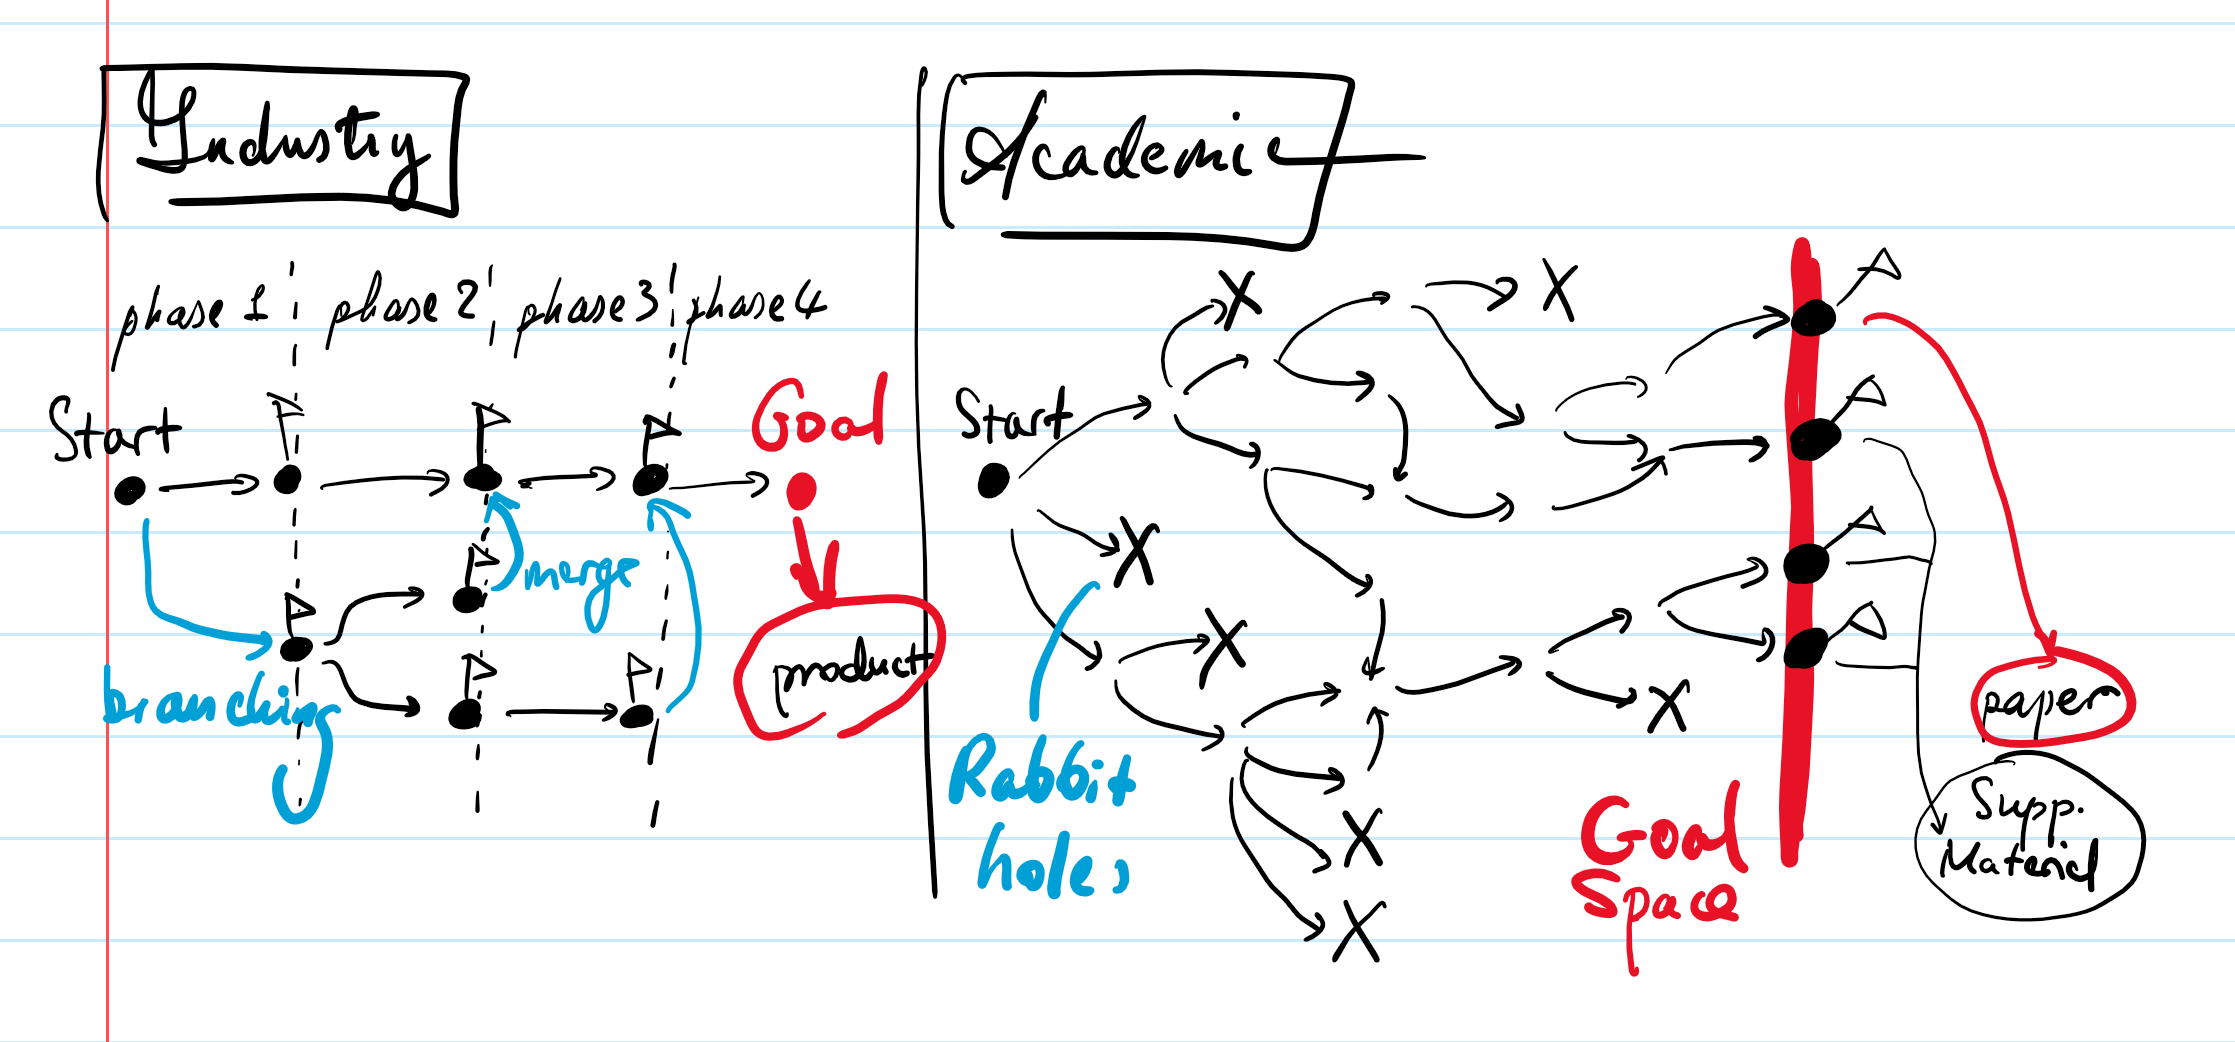 Industry
Academic
phase 1 phase 2 phase 3 phase 4
Start
Goal
merge
branching
product
Start
X
X
X
X
X
X
X
Rabbit
holes
Goal
Space
paper
Supp.
Material